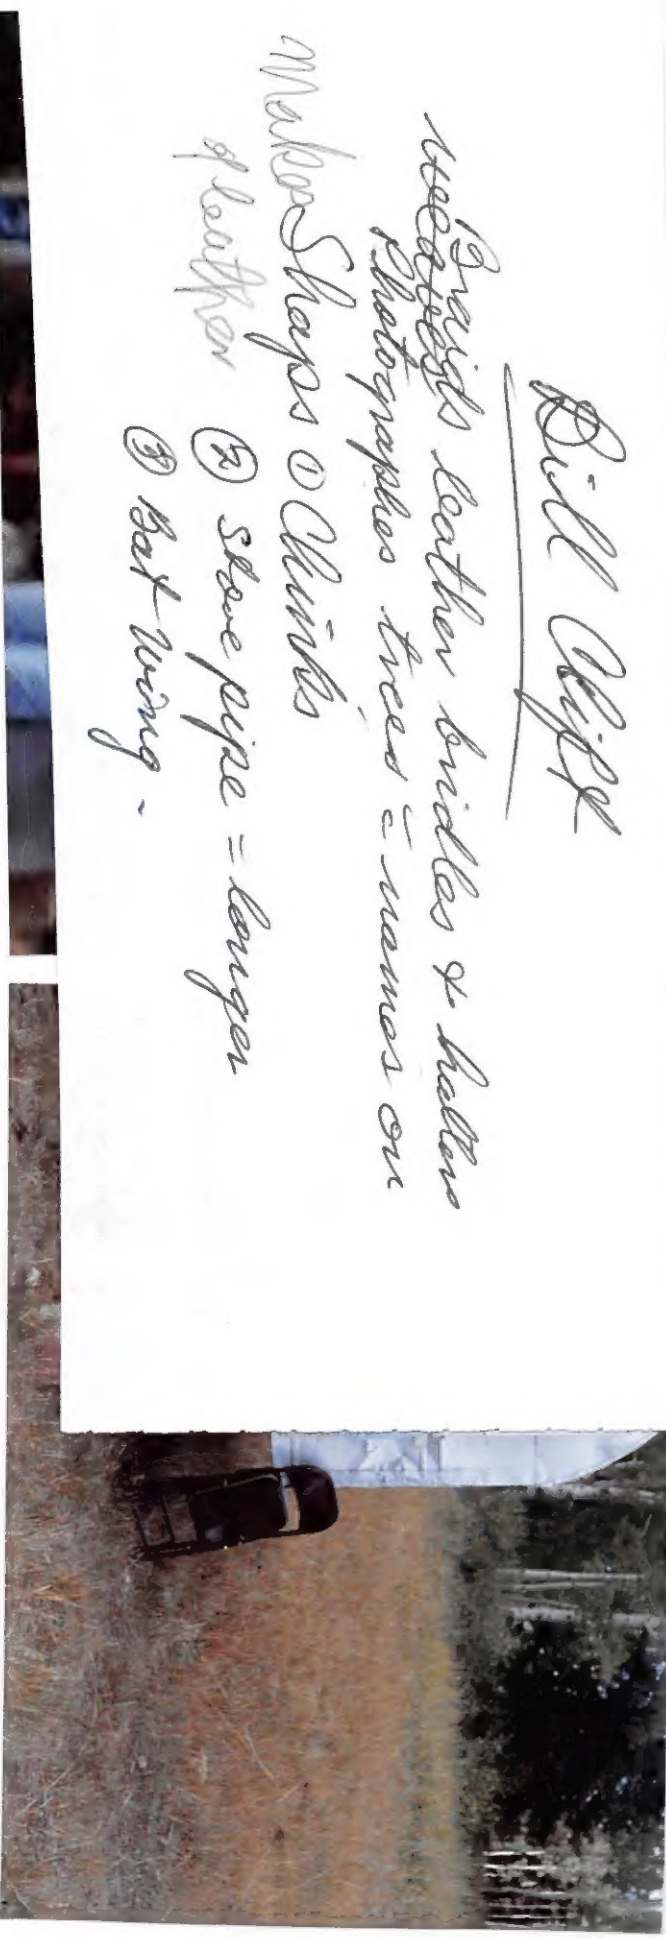 Bill Clift
Braids leather bridles & halters
Photographes trees c̄ names on
Makes Shaps ① Chinks
of leather ② Stove pipe = longer
③ Bat Wing -